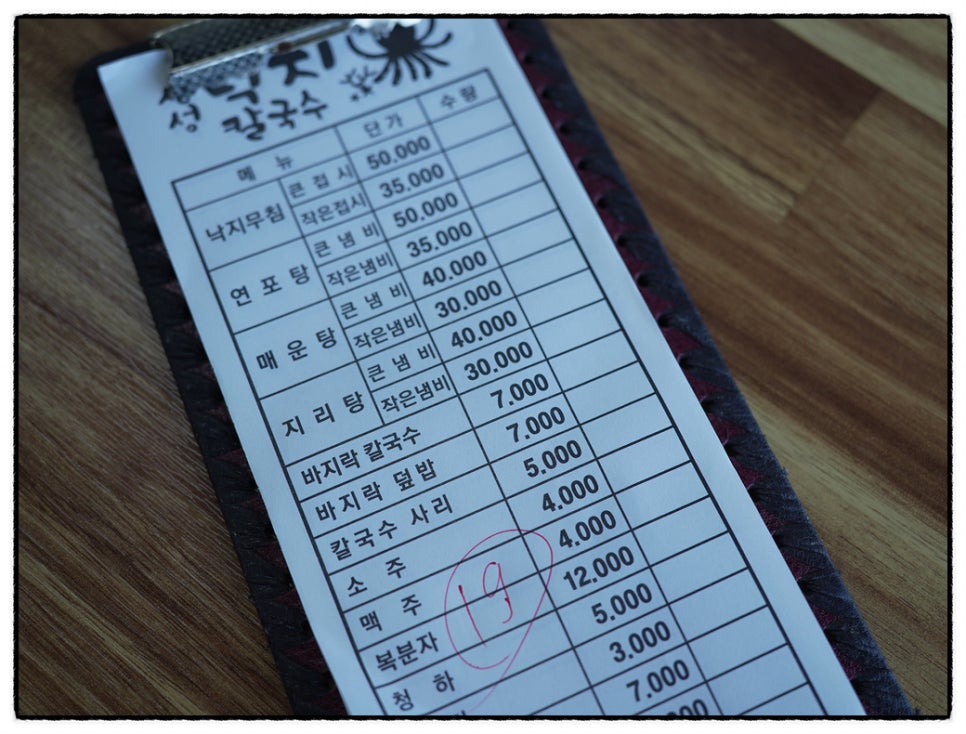 성 칼국수
메 뉴 단 가 수 량
낙지무침 큰 접 시 50.000
작은접시 35.000
연 포 탕 큰 냄 비 50.000
작은냄비 35.000
매 운 탕 큰 냄 비 40.000
작은냄비 30.000
지 리 탕 큰 냄 비 40.000
작은냄비 30.000
바지락 칼국수 7.000
바지락 덮밥 7.000
칼국수 사리 5.000
소 주 4.000
맥 주 4.000
19
복분자 12.000
청 하 5.000
3.000
7.000